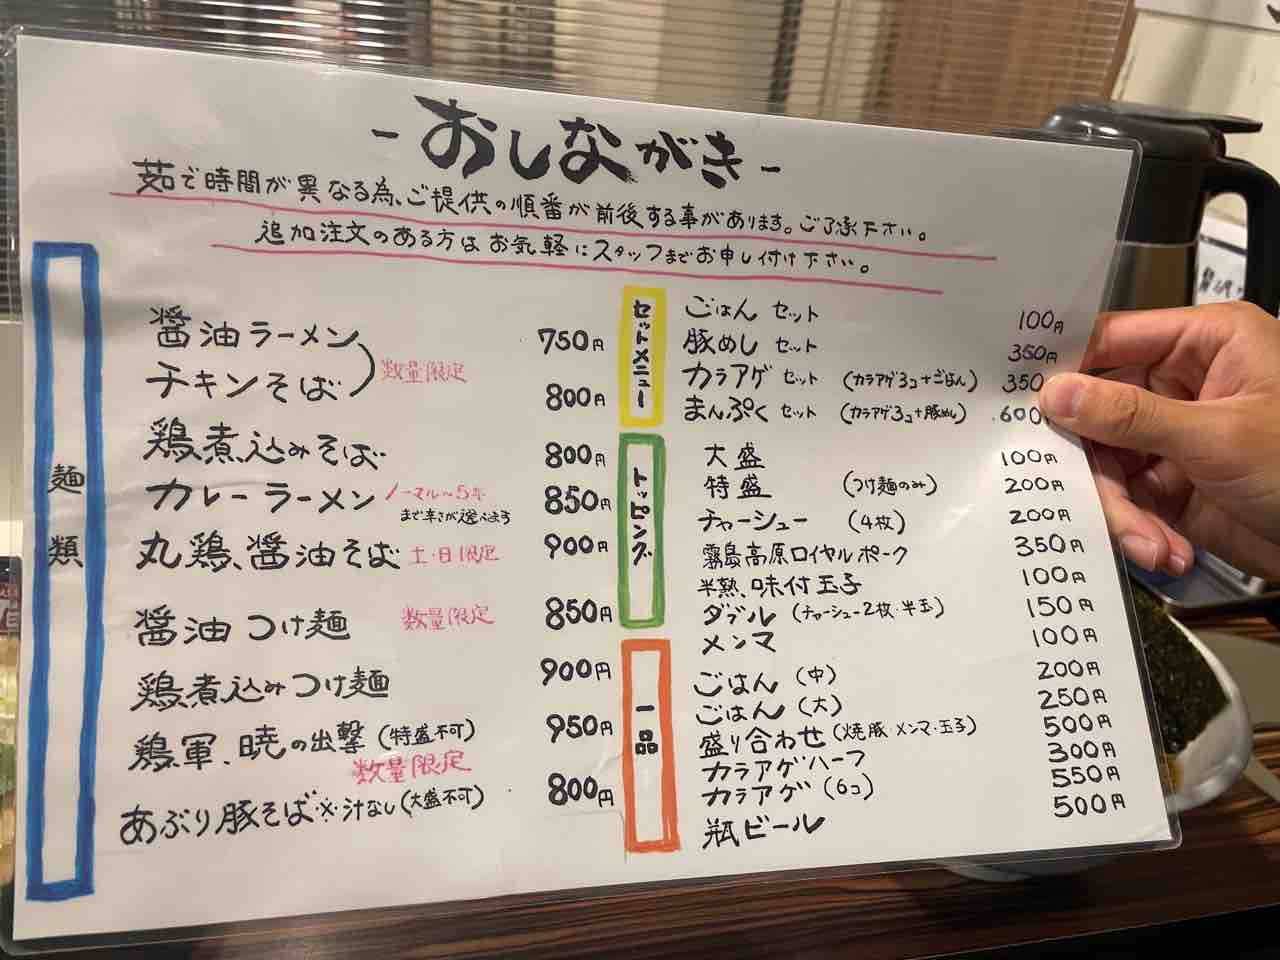 - おしながき -
茹で時間が異なる為、ご提供の順番が前後する事があります。ご了承下さい。
追加注文のある方はお気軽にスタッフまでお申し付け下さい。
麺類
醤油ラーメン 750円
チキンそば 800円
数量限定
鶏煮込みそば 800円
カレーラーメン ノーマル〜5辛 850円
まで辛さが選べます
丸鶏醤油そば 土・日限定 900円
醤油つけ麺 数量限定 850円
鶏煮込みつけ麺 900円
鶏軍、暁の出撃 (特盛不可) 950円
数量限定
あぶり豚そば ※汁なし (大盛不可) 800円
セットメニュー
ごはん セット 100円
豚めし セット 350円
カラアゲ セット (カラアゲ3コ+ごはん) 350
まんぷく セット (カラアゲ3コ+豚めし) 600円
トッピング
大盛 100円
特盛 (つけ麺のみ) 200円
チャーシュー (4枚) 200円
霧島高原ロイヤルポーク 350円
半熟味付玉子 100円
ダブル (チャーシュー2枚・半玉) 150円
メンマ 100円
一品
ごはん (中) 200円
ごはん (大) 250円
盛り合わせ (焼豚・メンマ・玉子) 500円
カラアゲハーフ 300円
カラアゲ (6コ) 550円
瓶ビール 500円